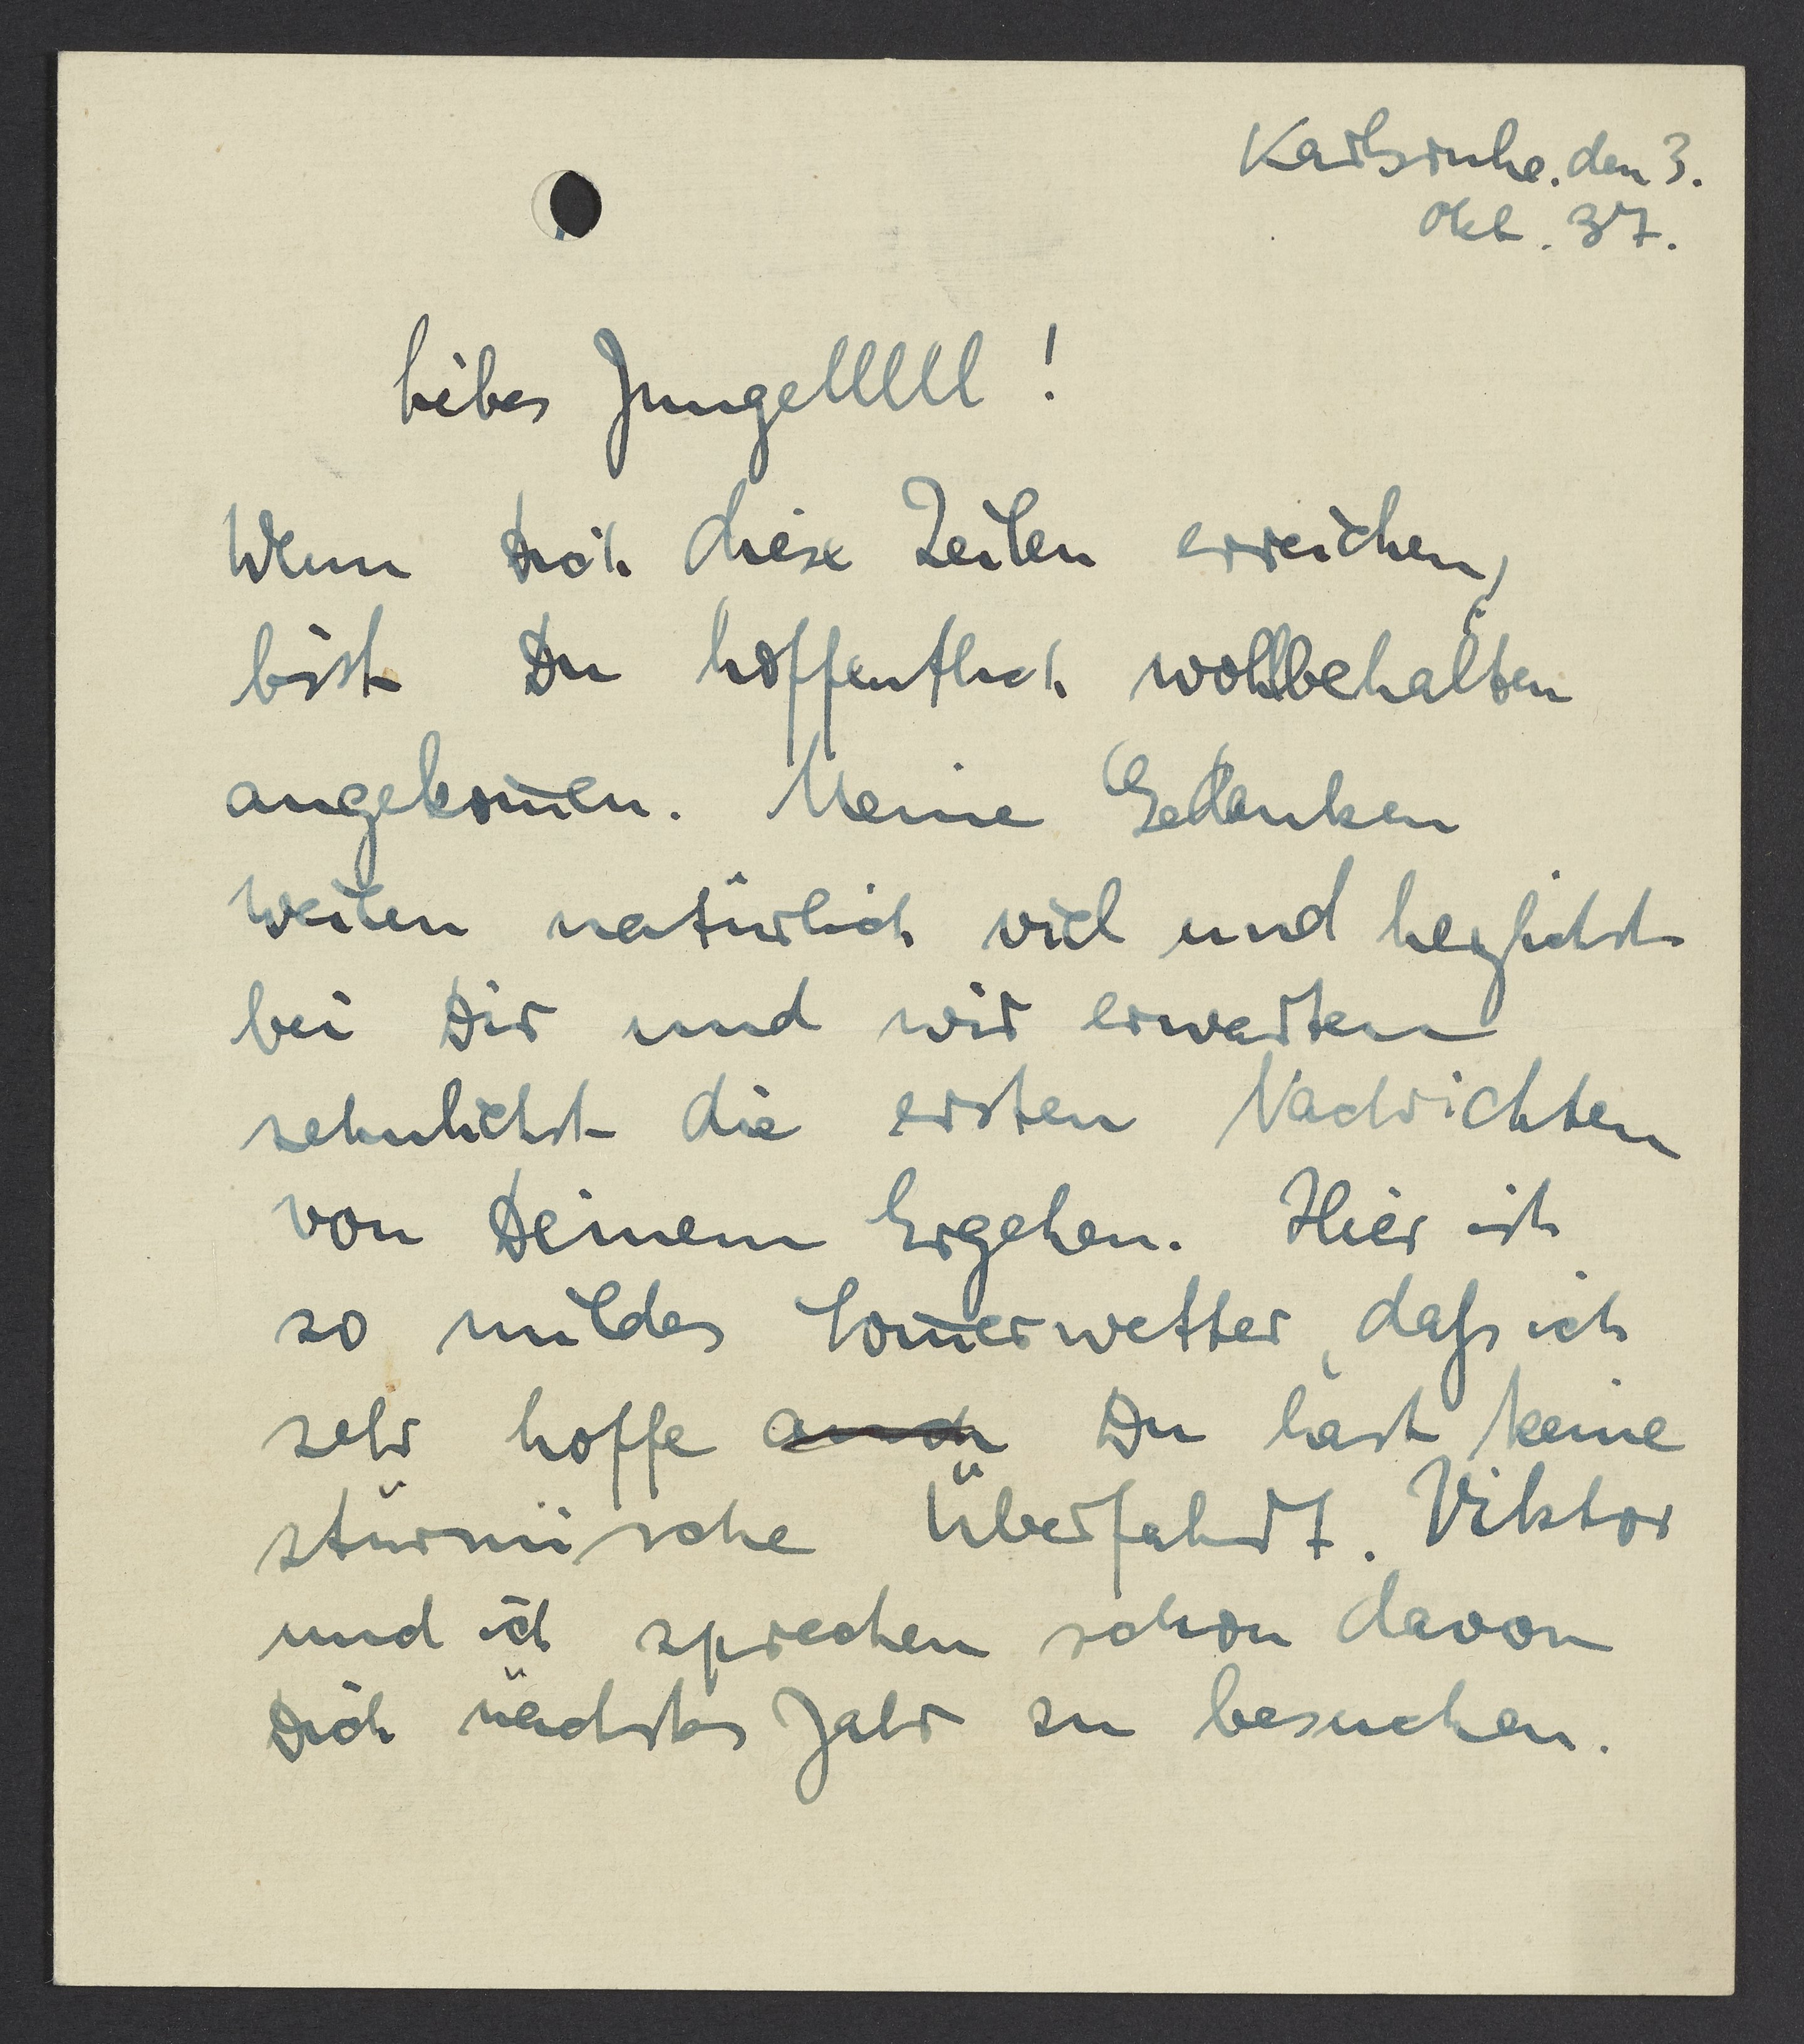 Karlsruhe. den 3.
Okt. 37.
Liebes Jungelllll!
Wenn Dich diese Zeilen erreichen,
bist Du hoffentlich wohlbehalten
angekom̅en. Meine Gedanken
weilen natürlich viel und herzlichst
bei Dir und wir erwarten
sehnlichst die ersten Nachrichten
von Deinem Ergehen. Hier ist
so mildes Som̅erwetter, daſs ich
sehr hoffe auch Du hast keine
stürmische Überfahrt. Viktor
und ich sprechen schon davon
Dich nächstes Jahr zu besuchen.